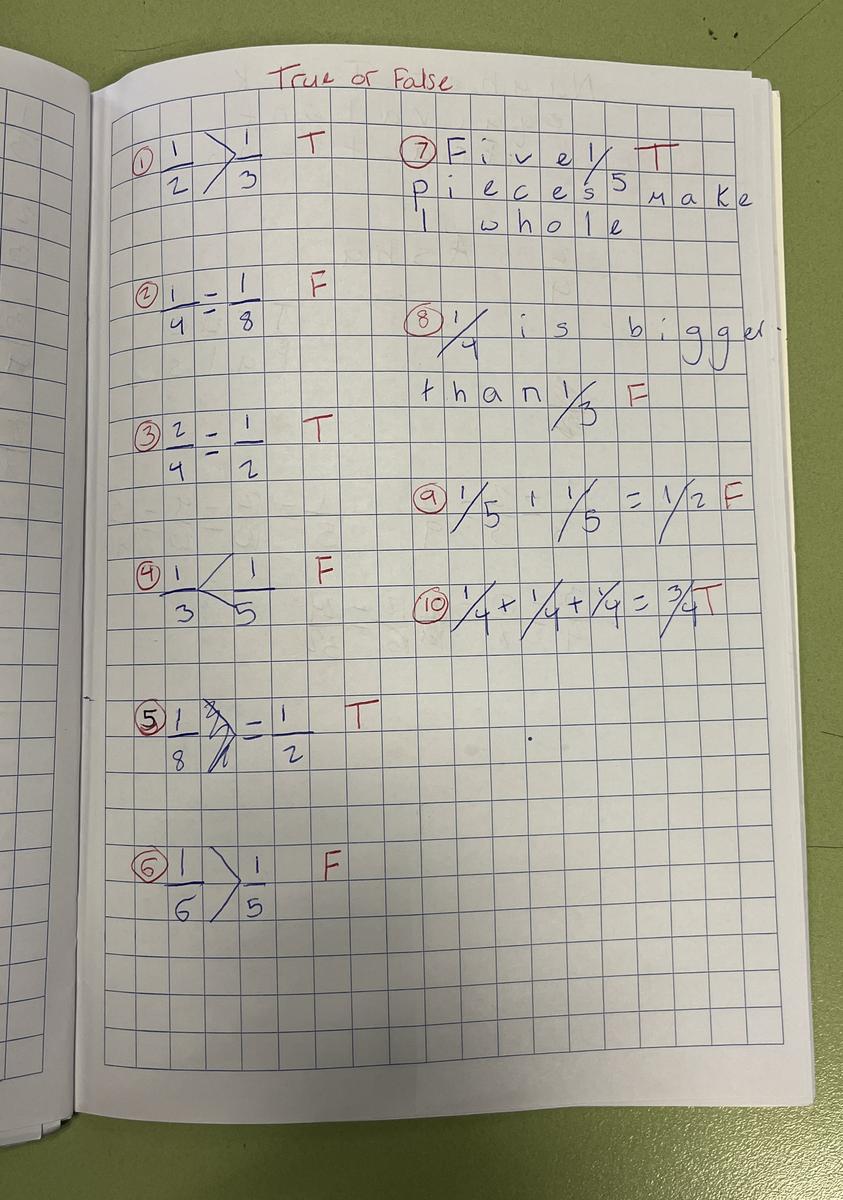 True or False
① 1/2 > 1/3 T
② 1/4 = 1/8 F
③ 2/4 = 1/2 T
④ 1/3 < 1/5 F
⑤ 1/8 = 1/2 T
⑥ 1/6 > 1/5 F
⑦ Five 1/5 T
pieces make
1 whole
⑧ 1/4 is bigger
than 1/3 F
⑨ 1/5 + 1/5 = 1/2 F
⑩ 1/4 + 1/4 + 1/4 = 3/4 T